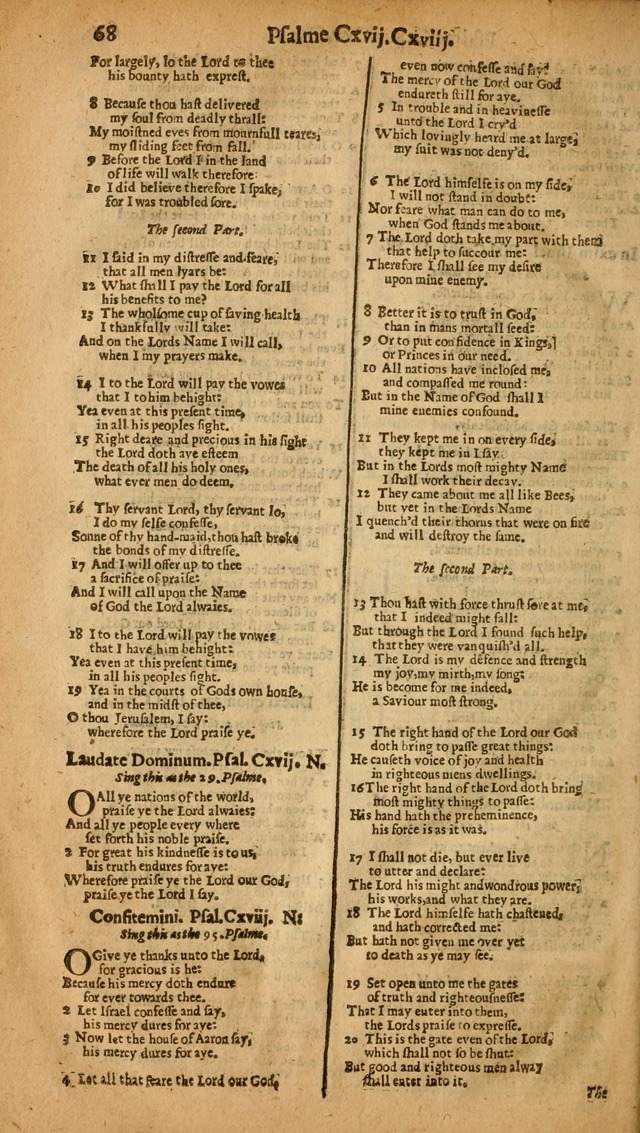 68 Psalme Cxvij.Cxviij.
For largely, lo the Lord to thee
his bounty hath exprest.
8 Because thou hast delivered
my soul from deadly thrall:
My moistned eyes from mournfull teares,
my sliding feet from fall.
9 Before the Lord I in the land
of life will walk therefore:
10 I did believe therefore I spake,
for I was troubled sore.
The second Part.
11 I said in my distresse and feare,
that all men lyars be:
12 What shall I pay the Lord for all
his benefits to me?
13 The wholsome cup of saving health
I thankfully will take:
And on the Lords Name I will call,
when I my prayers make.
14 I to the Lord will pay the vowes
that I to him behight:
Yea even at this present time,
in all his peoples sight.
15 Right deare and precious in his sight
the Lord doth ave esteem
The death of all his holy ones,
what ever men do deem.
16 Thy servant Lord, thy servant lo,
I do my selfe confesse,
Sonne of thy hand-maid, thou hast broke
the bonds of my distresse.
17 And I will offer up to thee
a sacrifice of praise:
And I will call upon the Name
of God the Lord alwaies.
18 I to the Lord will pay the vowes
that I have him behight:
Yea even at this present time,
in all his peoples sight.
19 Yea in the courts of Gods own house,
and in the midst of thee,
O thou Jerusalem, I say:
wherefore the Lord praise ye.
Laudate Dominum. Psal. Cxvij. N.
Sing this as the 29. Psalme.
O All ye nations of the world,
praise ye the Lord alwaies:
And all ye people every where
set forth his noble praise.
2 For great his kindnesse is to us,
his truth endures for aye:
Wherefore praise ye the Lord our God,
praise ye the Lord I say.
Confitemini. Psal. Cxviij. N:
Sing this as the 95. Psalme.
O Give ye thanks unto the Lord,
for gracious is he:
Because his mercy doth endure
for ever towards thee.
2 Let Israel confesse and say,
his mercy dures for aye:
3 Now let the house of Aaron say,
his mercy dures for aye.
4 Let all that feare the Lord our God,
even now confesse and say
The mercy of the Lord our God
endureth still for aye.
5 In trouble and in heavinesse
unto the Lord I cry'd
Which lovingly heard me at large,
my suit was not deny'd.
6 The Lord himselfe is on my side,
I will not stand in doubt:
Nor feare what man can do to me,
when God stands me about.
7 The Lord doth take my part with them
that help to succour me:
Therefore I shall see my desire
upon mine enemy.
8 Better it is to trust in God,
than in mans mortall seed:
9 Or to put confidence in Kings,
or Princes in our need.
10 All nations have inclosed me,
and compassed me round:
But in the Name of God shall I
mine enemies confound.
11 They kept me in on every side,
they kept me in I say
But in the Lords most mighty Name
I shall work their decay.
12 They came about me all like Bees,
but yet in the Lords Name
I quench'd their thorns that were on fire
and will destroy the same.
The second Part.
13 Thou hast with force thrust sore at me,
that I indeed might fall:
But through the Lord I found such help,
that they were vanquish'd all.
14 The Lord is my defence and strength
my joy, my mirth, my song:
He is become for me indeed,
a Saviour most strong.
15 The right hand of the Lord our God
doth bring to passe great things:
He causeth voice of joy and health
in righteous mens dwellings.
16 The right hand of the Lord doth bring
most mighty things to passe:
His hand hath the preheminence,
his force is as it was.
17 I shall not die, but ever live
to utter and declare:
The Lord his might and wondrous power,
his works, and what they are.
18 The Lord himselfe hath chastened,
and hath corrected me:
But hath not given me over yet
to death as ye may see.
19 Set open unto me the gates
of truth and righteousnesse:
That I may enter into them,
the Lords praise to expresse.
20 This is the gate even of the Lord,
which shall not so be shut:
But good and righteous men alway
shall enter into it.
The